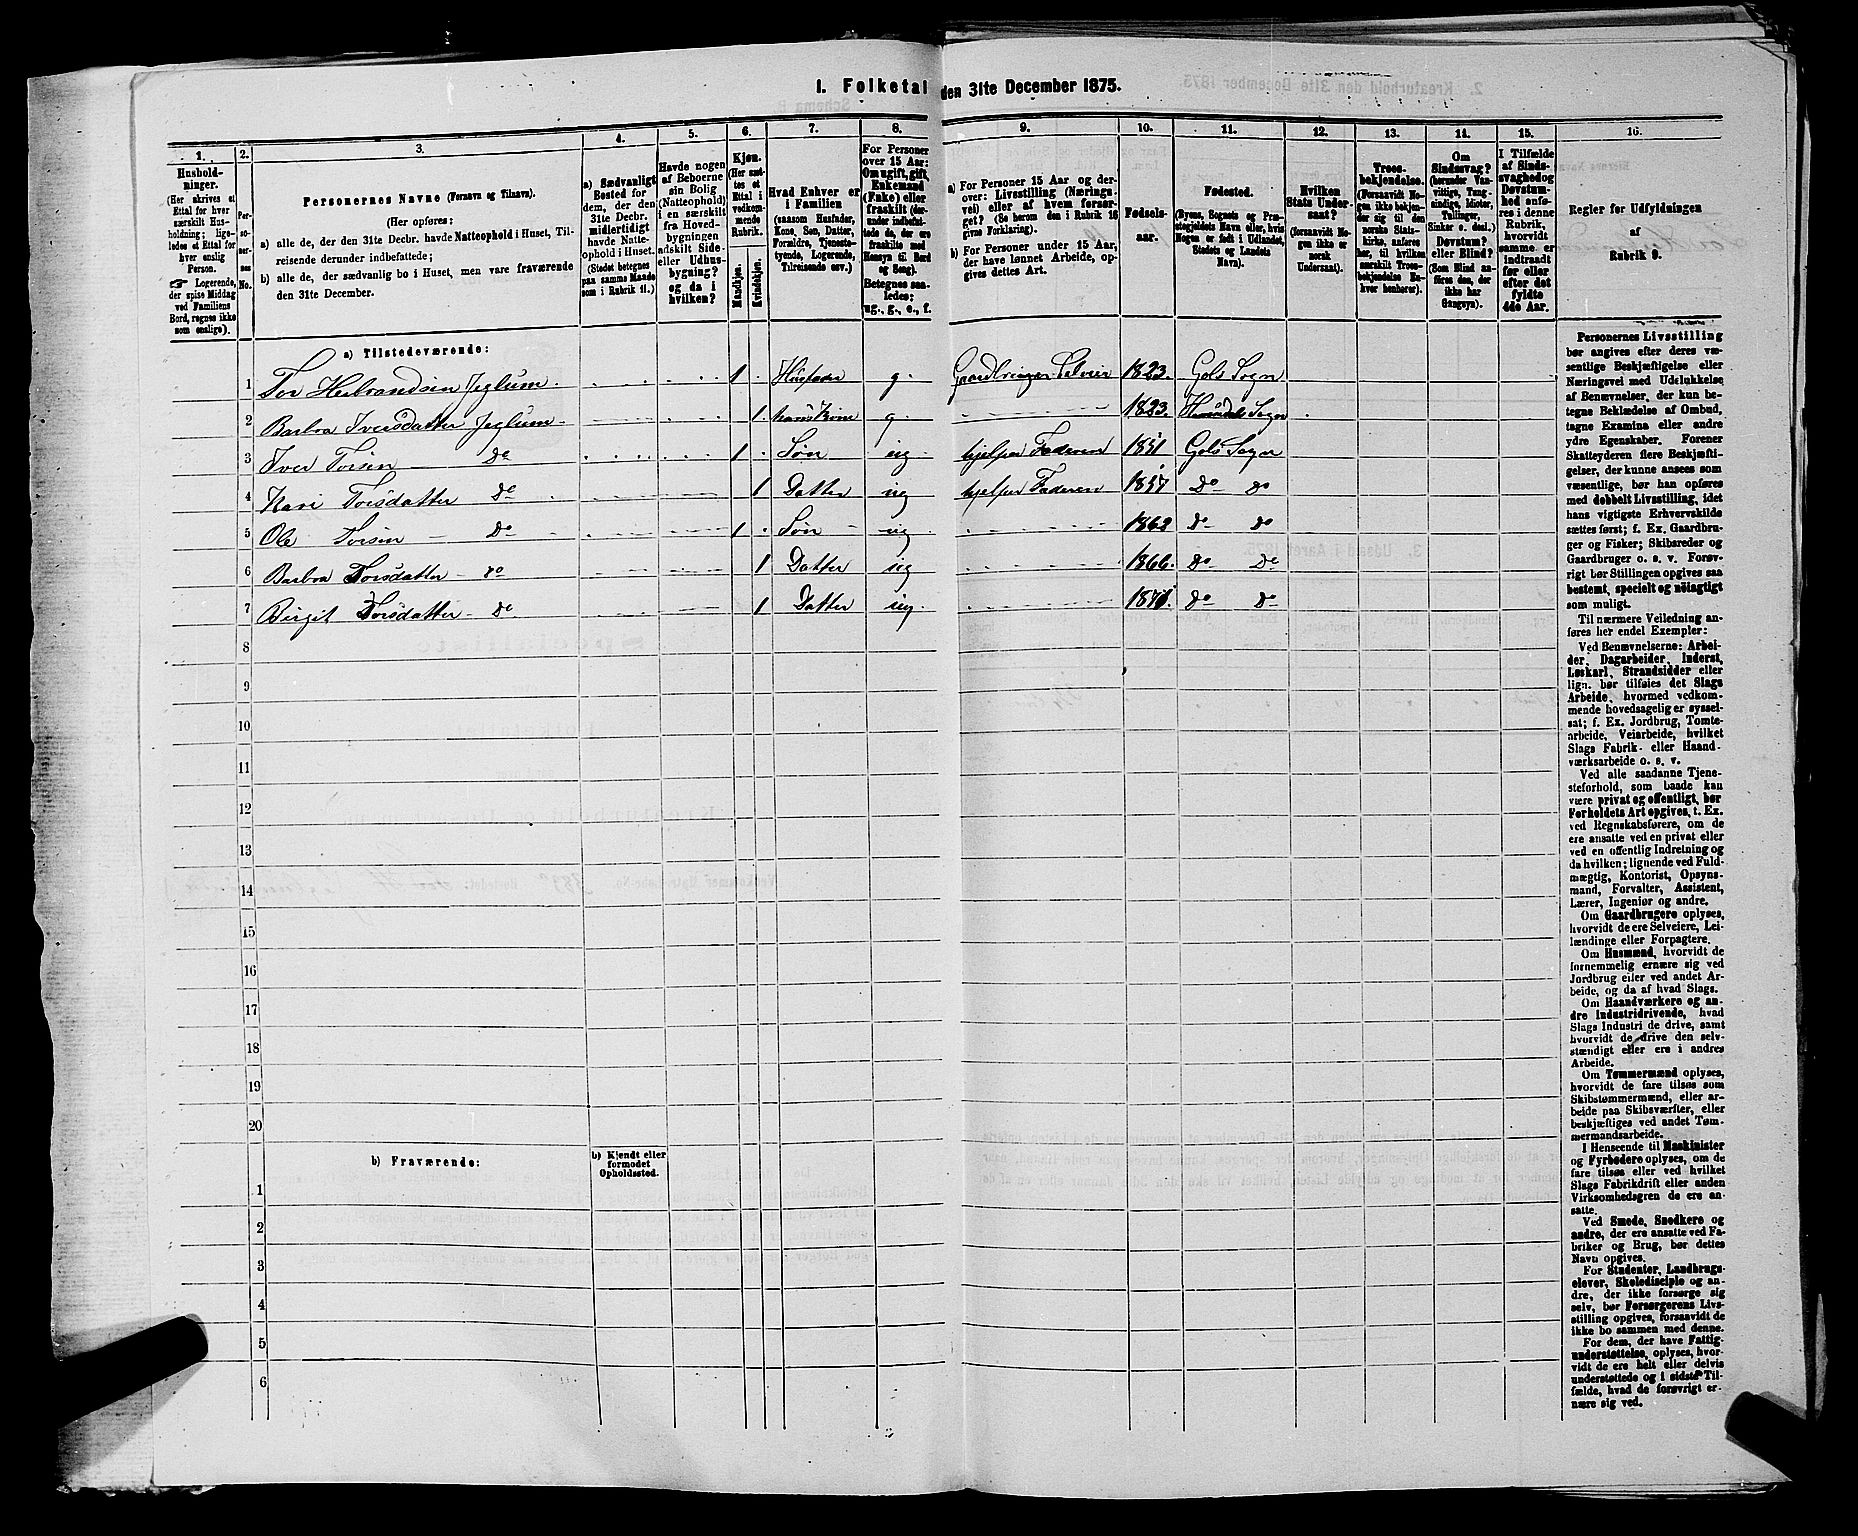 I. Folketal den 31te December 1875.
1. 2. 3. 4. 5. 6. 7. 8. 9. 10. 11. 12. 13. 14. 15. 16.
Husholdninger.
(Her skrives et
Ettal for hver
særskilt Husholdning;
ligeledes et Ettal for
hver enslig
Person.
☞ Logerende,
der spise Middag
ved Familiens
Bord, regnes ikke
som enslige).
Personernes No.
Personernes Navne (Fornavn og Tilnavn).
(Her opføres:
a) alle de, der den 31te Decbr. havde Natteophold i Huset, Tilreisende
derunder indbefattede;
b) alle de, der sædvanlig bo i Huset, men vare fraværende
den 31te December.
a) Sædvanligt
Bosted for
dem, der den
31te Decbr.
midlertidigt
havde Natteophold
i Huset.
(Stedet betegnes
paa samme Maade
som i Rubrik 11.)
Havde nogen
af Beboerne
sin Bolig
(Natteophold)
i en særskilt
fra Hovedbygningen
adskilt Side-
eller Udhusbygning?
og da i
hvilken?
Kjøn.
(Her sættes
et
Ettal i
vedkommende
Rubrik.
Mandkjøn.
Kvindekjøn.
Hvad Enhver er
i Familien
(saasom Husfader,
Kone, Søn, Datter,
Forældre, Tjenestetyende,
Logerende,
Tilreisende osv.)
For Personer
over 15 Aar:
Om ugift, gift,
Enkemand
(Enke) eller
fraskilt (derunder
indbefattede
de, der ere
fraskilte med
Hensyn til Bord
og Seng).
Betegnes saaledes:
ug., g., e., f.
a) For Personer 15 Aar og derover:
Livsstilling (Næringsvei)
eller af hvem forsørget?
(Se herom den i Rubrik 16
givne Forklaring).
b) For Personer under 15 Aar,
der have lønnet Arbeide, opgives
dettes Art.
Fødselsaar.
Fødested.
(Byens, Sognets og Præstegjeldets
Navn eller, hvis
Nogen er født i Udlandet,
Stedets og Landets
Navn).
Hvilken
Stats Undersaat?
(forsaavidt Nogen
ikke er
norsk
Undersaat).
Troesbekjendelse.
(Forsaavidt Nogen
ikke bekjender
sig til den
norske Statskirke,
anføres
her, til hvilken
særskilt Troesbekjendelse
Enhver
henhører).
Om
Sindssvag?
(herunder Vanvittige,
Tungsindige,
Idioter,
Tullinger,
Sinker o. desl.)
Døvstum?
eller Blind?
(Som Blind anføres
den, der
ikke har
Gangsyn).
I Tilfælde
af Sindssvaghed
og
Døvstumhed
anføres
i denne
Rubrik,
hvorvidt
samme er
indtraadt
før eller
efter det
fyldte
4de Aar.
Regler for Udfyldningen
af
Rubrik 9.
a) Tilstedeværende:
1 Tor Herbrandsen Jeglum 1 Husfader g. Gaardbruger Selveier 1823. Gols Sogn
2 Barbra Iversdatter Jeglum 1 hans Kone g. 1823. Hemsedals Sogn
3 Iver Torsen Do 1 Søn ug hjelper Faderen 1851 Gols Sogn
4 Kari Torsdatter Do 1 Datter ug hjelper Faderen 1857 Do Do
5 Ole Torsen Do 1 Søn ug 1862 Do Do
6 Barbra Torsdatter Do 1 Datter ug 1866. Do Do
7 Birgit Torsdatter Do 1 Datter ug. 1871. Do Do
8
9
10
11
12
13
14
15
16
17
18
19
20
b) Fraværende:
b) Kjendt eller
formodet
Opholdssted.
1
2
3
4
5
6
Personernes Livsstilling
bør angives efter deres væsentlige
Beskjæftigelse eller
Næringsvei med Udelukkelse
af Benævnelser, der kun betegne
Beklædelse af Ombud,
tagne Examina eller andre
ydre Egenskaber. Forener
Skatteyderen flere Beskjæftigelser,
der kunne ansees som
væsentlige, bør han opføres
med dobbelt Livsstilling, idet
hans vigtigste Erhvervskilde
sættes først; f. Ex. Gaardbruger
og Fisker; Skibsreder og
Gaardbruger o. s. v. Forøvrigt
bør Stillingen opgives saa
bestemt, specielt og nøiagtigt
som muligt.
Til nærmere Veiledning anføres
her endel Exempler:
Ved Benævnelserne: Arbeider,
Dagarbeider, Inderst,
Løskarl, Strandsidder eller
lign. bør tilføies det Slags
Arbeide, hvormed vedkommende
hovedsagelig er sysselsat;
f. Ex. Jordbrug, Tomtearbeide,
Veiarbeide, hvilket
Slags Fabrik- eller Haandværksarbeide
o. s. v.
Ved alle saadanne Tjenesteforhold,
som baade kan
være privat og offentligt, bør
Forholdets Art opgives, t. Ex.
ved Regnskabsførere, om de
ere ansatte ved en privat eller
ved en offentlig Indretning og
da hvilken; lignende ved Fuldmægtig,
Kontorist, Opsynsmand,
Forvalter, Assistent,
Lærer, Ingeniør og andre.
Om Gaardbrugere oplyses,
hvorvidt de ere Selveiere, Leilændinge
eller Forpagtere.
Om Husmænd, hvorvidt de
fornemmelig ernære sig ved
Jordbrug eller ved andet Arbeide,
og da af hvad Slags.
Om Haandværkere og andre
Industridrivende, hvad
Slags Industri de drive, samt
hvorvidt de drive den selvstændigt
eller ere i andres
Arbeide.
Om Tømmermænd oplyses,
hvorvidt de fare tilsøs som
Skibstømmermænd, eller arbeide
paa Skibsværfter, eller
beskjæftiges ved andet Tømmermandsarbeide.
I Henseende til Maskinister
og Fyrbødere oplyses, om de
fare tilsøs eller ved hvilket
Slags Fabrikdrift eller anden
Virksomhedsgren de ere ansatte.
Ved Smede, Snedkere og
andre, der ere ansatte ved Fabriker
og Brug, bør dettes
Navn opgives.
For Studenter, Landbrugselever,
Skoledisciple og andre,
der ikke forsørge sig
selv, bør Forsørgerens Livsstilling
opgives, forsaavidt de
ikke bo sammen med denne.
For dem, der have Fattigunderstøttelse,
oplyses, hvorvidt
de ere helt eller delvis
understøttede og i sidste Tilfælde,
hvad de forøvrigt ernære
sig ved.